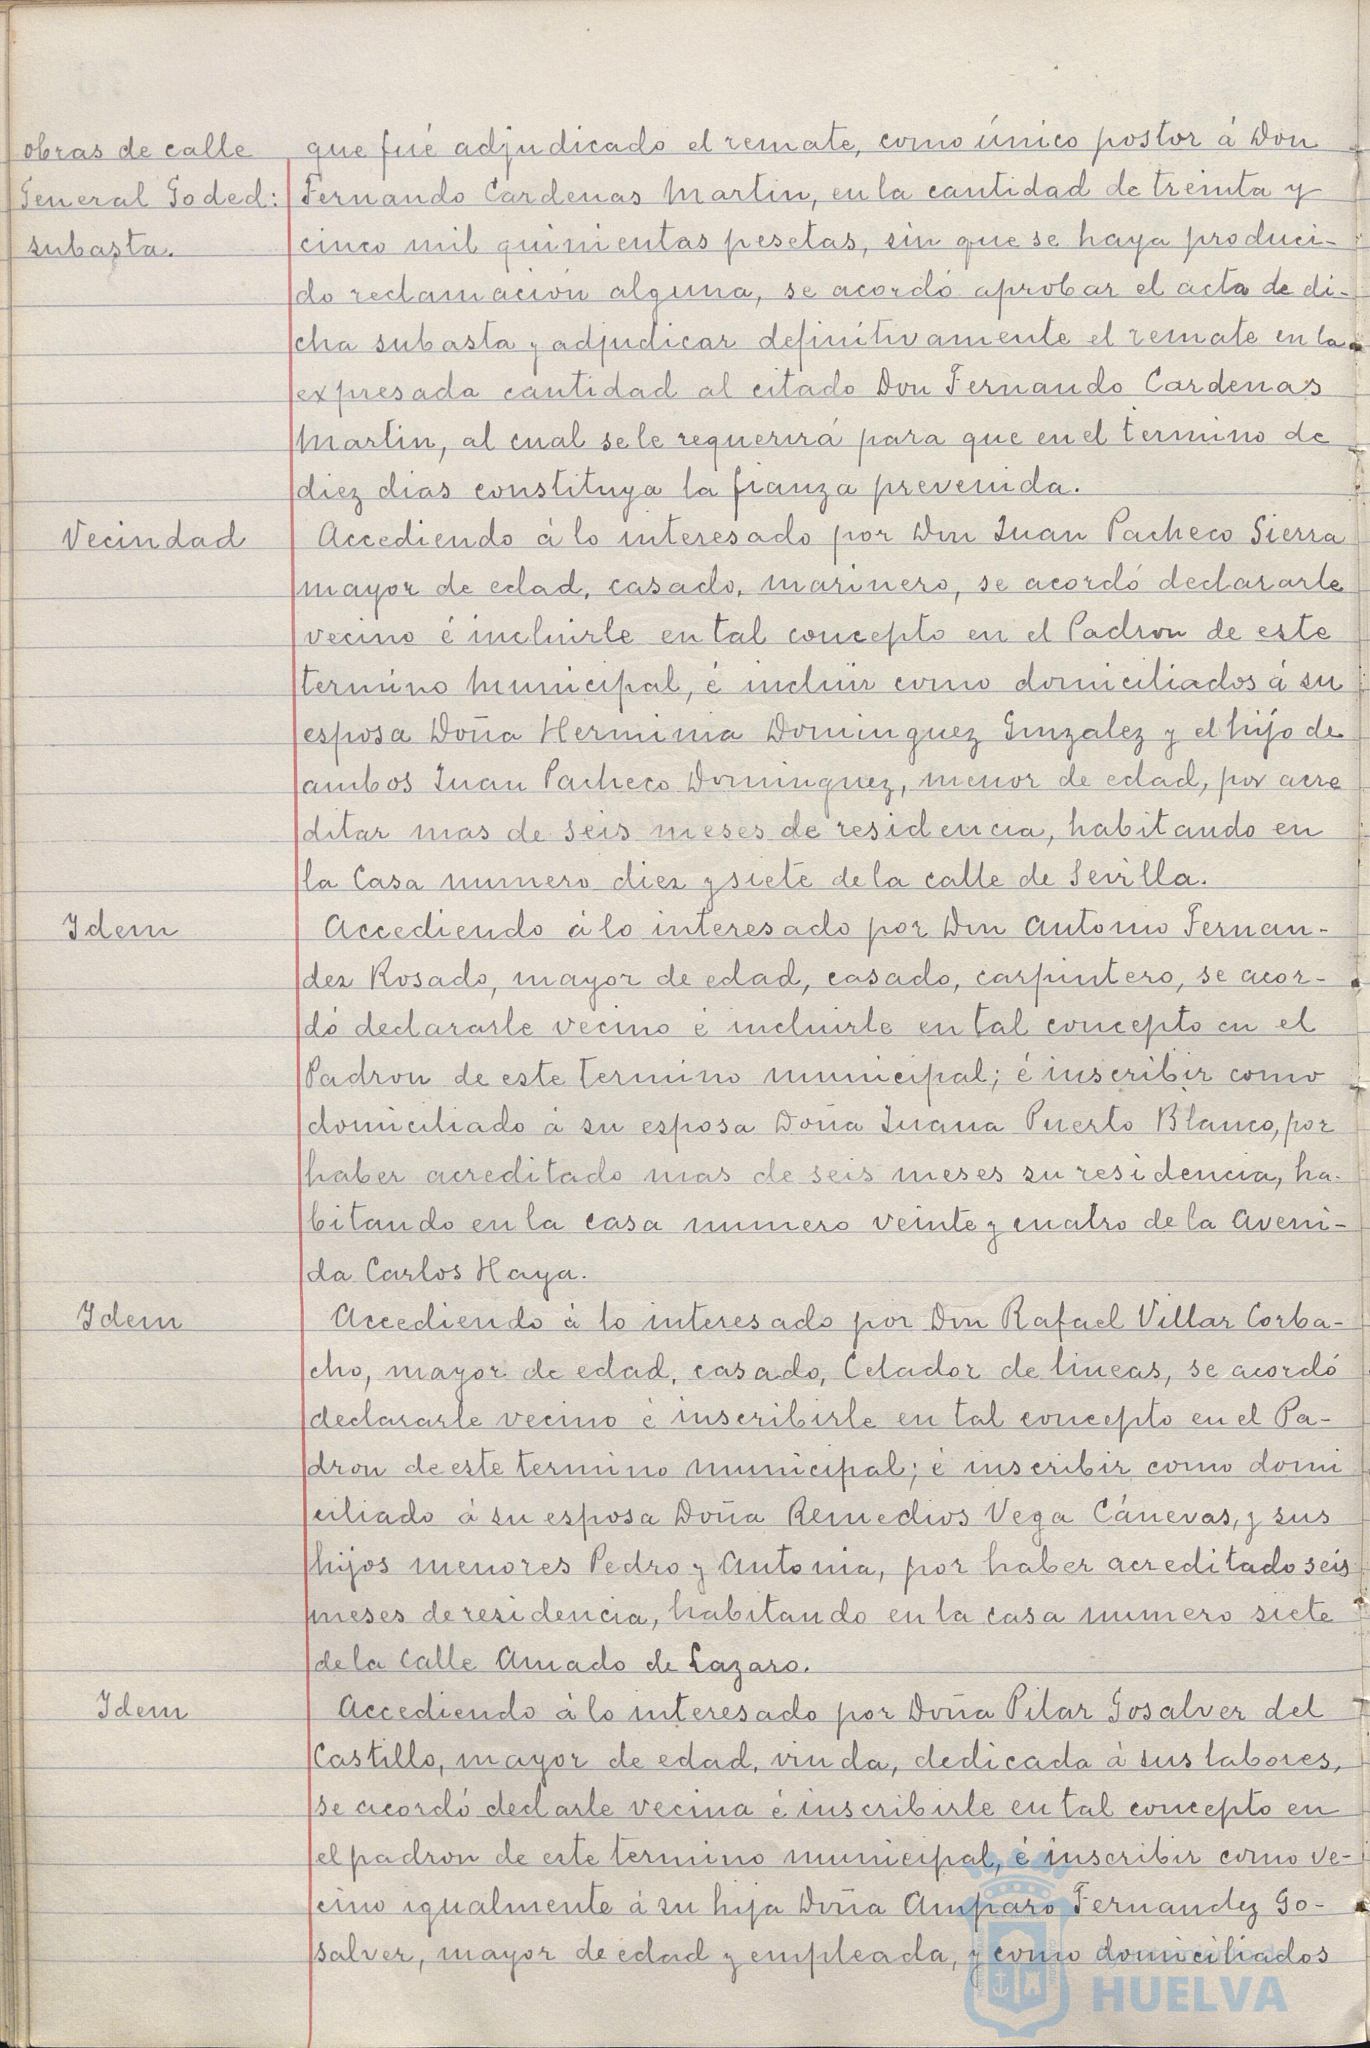 obras de calle
General Goded:
subasta.
que fué adjudicado el remate, como único postor á Don
Fernando Cardenas Martin, en la cantidad de treinta y
cinco mil quinientas pesetas, sin que se haya produci-
do reclamación alguna, se acordó aprobar el acta de di-
cha subasta y adjudicar definitivamente el remate en la
expresada cantidad al citado Don Fernando Cardenas
Martin, al cual se le requerirá para que en el termino de
diez dias constituya la fianza prevenida.
Vecindad
Accediendo á lo interesado por Don Juan Pacheco Sierra
mayor de edad, casado, marinero, se acordó declararle
vecino é incluirle en tal concepto en el Padron de este
termino municipal, é incluir como domiciliados á su
esposa Doña Herminia Dominguez Gonzalez y el hijo de
ambos Juan Pacheco Dominguez, menor de edad, por acre
ditar mas de seis meses de residencia, habitando en
la Casa numero diez y siete de la calle de Sevilla.
Idem
Accediendo á lo interesado por Don Antonio Fernan-
dez Rosado, mayor de edad, casado, carpintero, se acor-
dó declararle vecino é incluirle en tal concepto en el
Padron de este termino municipal; é inscribir como
domiciliado á su esposa Doña Juana Puerto Blanco, por
haber acreditado mas de seis meses su residencia, ha-
bitando en la casa numero veinte y cuatro de la Aveni-
da Carlos Haya.
Idem
Accediendo á lo interesado por Don Rafael Villar Corba-
cho, mayor de edad, casado, Celador de lineas, se acordó
declararle vecino é inscribirle en tal concepto en el Pa-
dron de este termino municipal; é inscribir como domi
ciliado á su esposa Doña Remedios Vega Cánevas, y sus
hijos menores Pedro y Antonia, por haber acreditado seis
meses de residencia, habitando en la casa numero siete
de la Calle Amado de Lazaro.
Idem
Accediendo á lo interesado por Doña Pilar Gosalver del
Castillo, mayor de edad, viuda, dedicada á sus labores,
se acordó declarle vecina é inscribirle en tal concepto en
el padron de este termino municipal, é inscribir como ve-
cino igualmente á su hija Doña Amparo Fernandez Go-
salver, mayor de edad y empleada, y como domiciliados
HUELVA